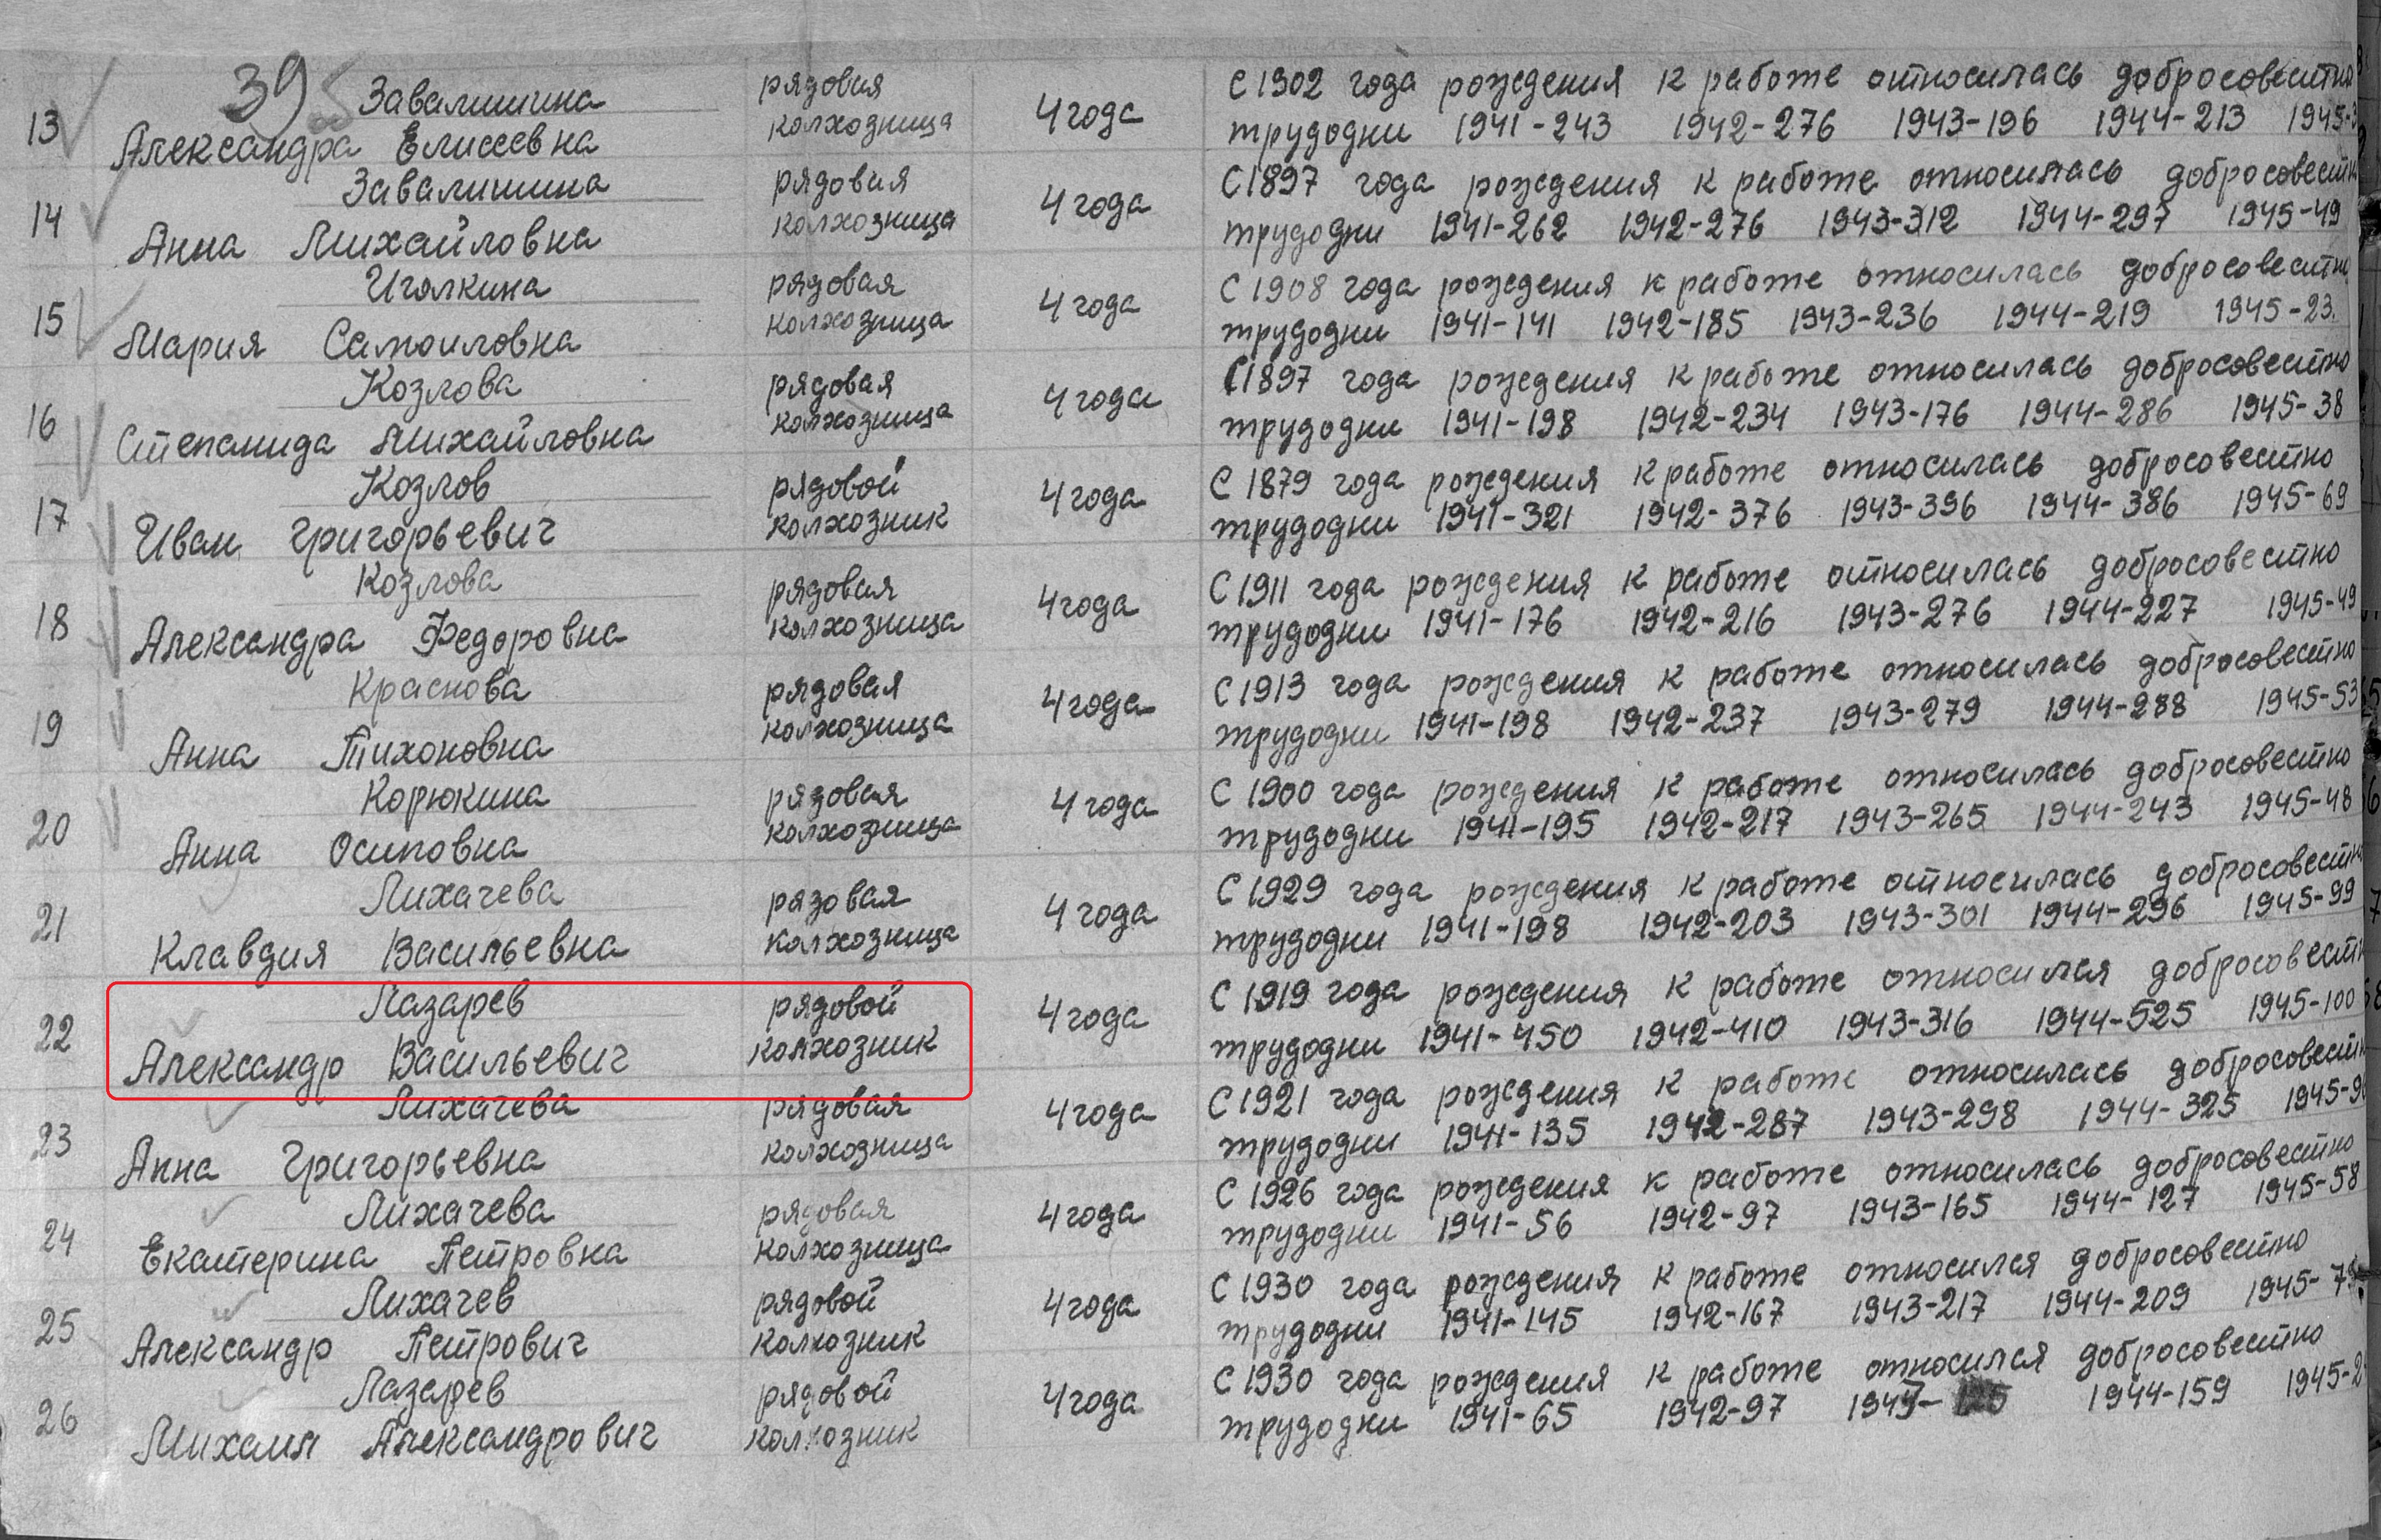 39
13 Завалишина рядовая 4 года С 1902 года рождения к работе относилась добросовестно
Александра Елисеевна колхозница трудодни 1941-243 1942-276 1943-196 1944-213 1945-3
14 Завалишина рядовая 4 года С 1897 года рождения к работе относилась добросовестн
Анна Михайловна колхозница трудодни 1941-262 1942-276 1943-312 1944-297 1945-49
15 Игялкина рядовая 4 года С 1908 года рождения к работе относилась добросовестно
Мария Самоиловна колхозница трудодни 1941-141 1942-185 1943-236 1944-219 1945-23
16 Козлова рядовая 4 года С 1897 года рождения к работе относилась добросовестно
Степанида Михайловна колхозница трудодни 1941-198 1942-234 1943-176 1944-286 1945-38
17 Козлов рядовой 4 года С 1879 года рождения к работе относилась добросовестно
Иван Григорьевич колхозник трудодни 1941-321 1942-376 1943-396 1944-386 1945-69
18 Козлова рядовая 4 года С 1911 года рождения к работе относилась добросовестно
Александра Федоровна колхозница трудодни 1941-176 1942-216 1943-276 1944-227 1945-49
19 Краснова рядовая 4 года С 1913 года рождения к работе относилась добросовестно
Анна Тихоновна колхозница трудодни 1941-198 1942-237 1943-279 1944-288 1945-53
20 Корюкина рядовая 4 года С 1900 года рождения к работе относилась добросовестно
Анна Осиповна колхозница трудодни 1941-195 1942-217 1943-265 1944-243 1945-48
21 Лихачева рядовая 4 года С 1929 года рождения к работе относилась добросовестн
Клавдия Васильевна колхозница трудодни 1941-198 1942-203 1943-301 1944-296 1945-99
22 Лазарев рядовой 4 года С 1919 года рождения к работе относился добросовестн
Александр Васильевич колхозник трудодни 1941-450 1942-410 1943-316 1944-525 1945-100
23 Лихачева рядовая 4 года С 1921 года рождения к работе относилась добросовестн
Анна Григорьевна колхозница трудодни 1941-135 1942-287 1943-298 1944-325 1945-9
24 Лихачева рядовая 4 года С 1926 года рождения к работе относилась добросовестно
Екатерина Петровна колхозница трудодни 1941-56 1942-97 1943-165 1944-127 1945-58
25 Лихачев рядовой 4 года С 1930 года рождения к работе относился добросовестно
Александр Петрович колхозник трудодни 1941-145 1942-167 1943-217 1944-209 1945-7
26 Лазарев рядовой 4 года С 1930 года рождения к работе относился добросовестно
Михаил Александрович колхозник трудодни 1941-65 1942-97 1944-159 1945-2